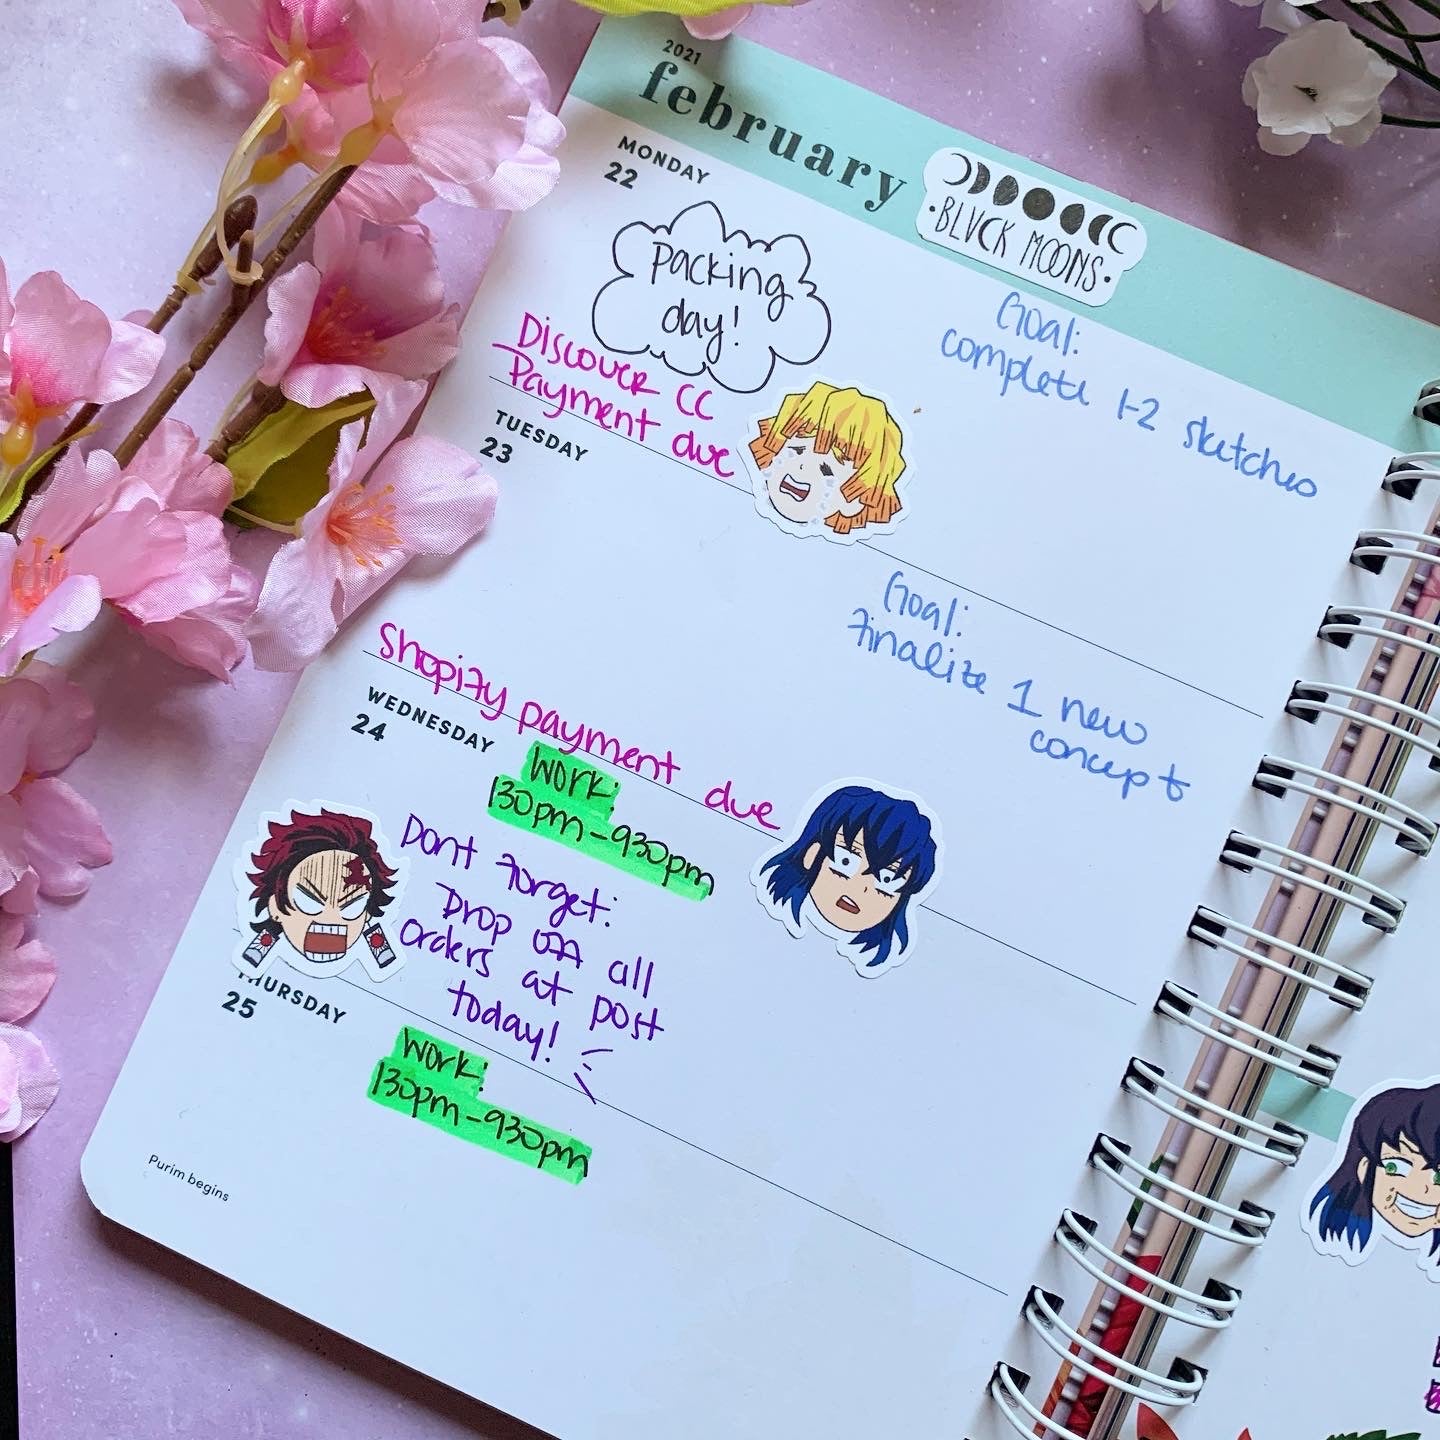 2021
february
·BLVCK MOONS·
MONDAY
22
Packing
day!
Goal:
complete 1-2 sketches
Discover CC
Payment due
TUESDAY
23
Goal:
finalize 1 new
concept
Shopify payment due
WEDNESDAY
24
Work:
130pm-930pm
Dont forget:
Drop off all
orders at post
today!
THURSDAY
25
Work:
130pm-930pm
Purim begins